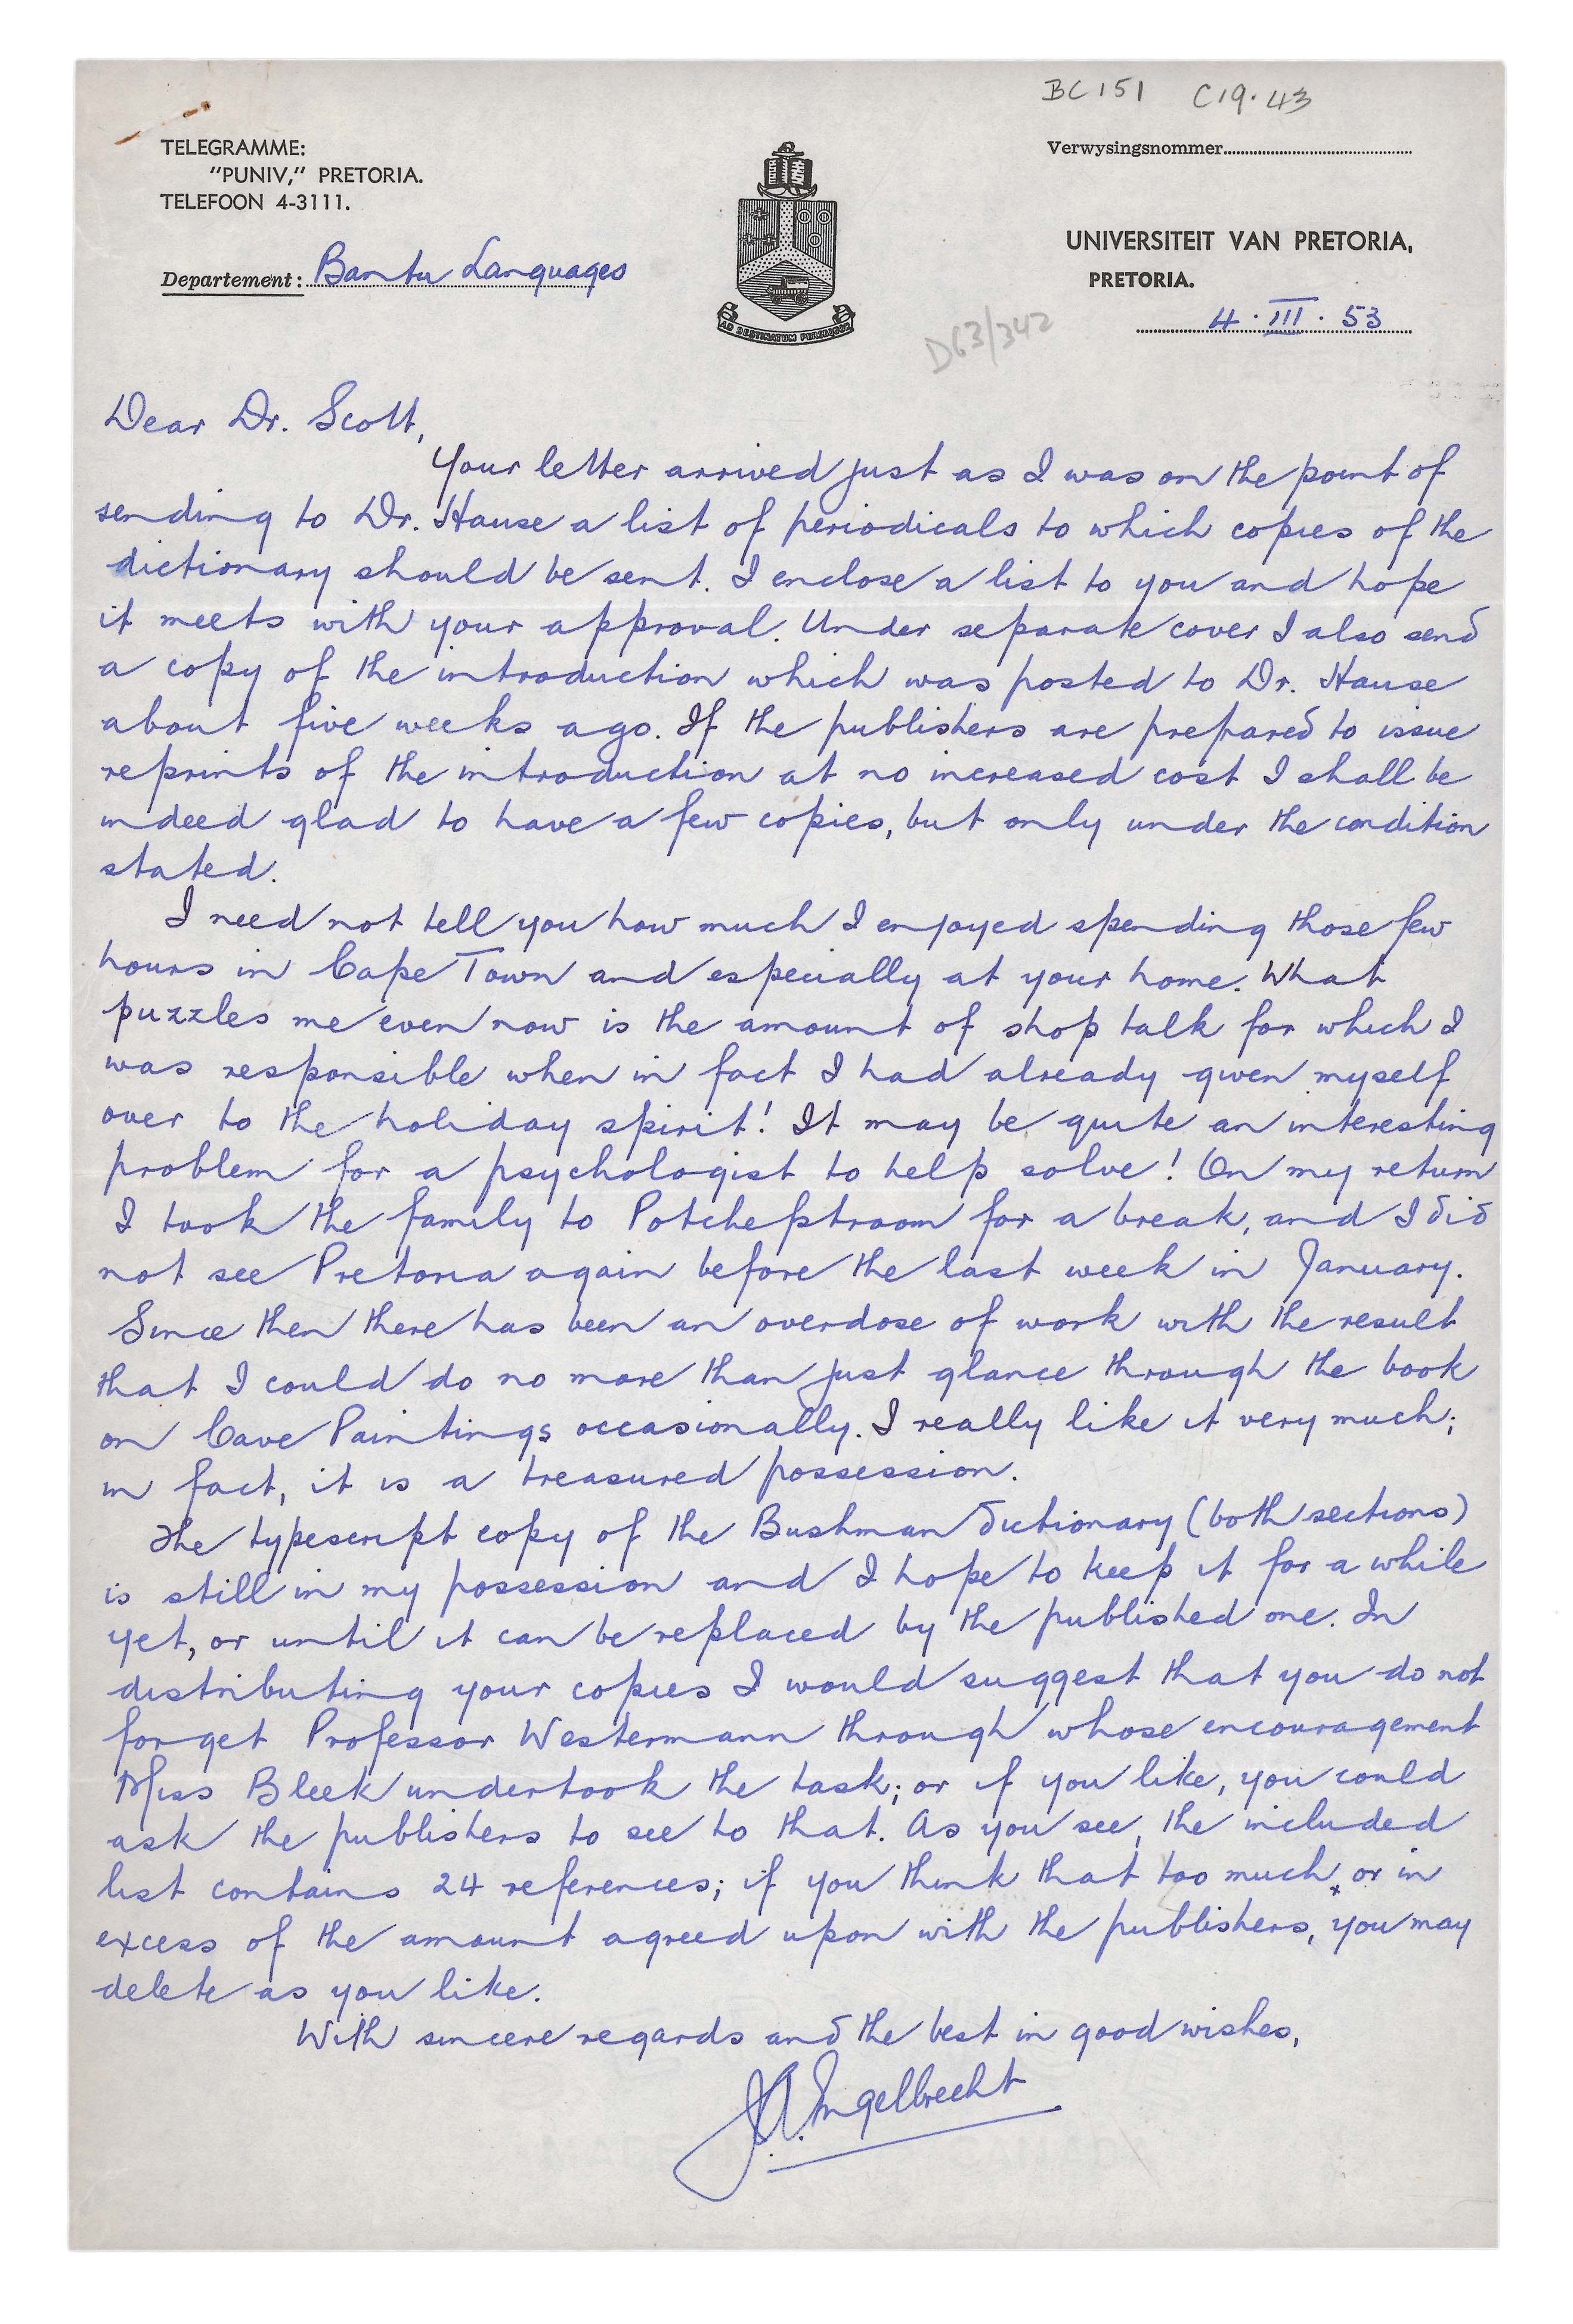 BC151 C19.43
TELEGRAMME:
"PUNIV," PRETORIA.
TELEFOON 4-3111.
Departement: Bantu Languages
AD DESTINATUM PERSEQUOR
Verwysingsnommer
UNIVERSITEIT VAN PRETORIA,
PRETORIA.
4.III.53
D63/342
Dear Dr. Scott,
Your letter arrived just as I was on the point of
sending to Dr. Hause a list of periodicals to which copies of the
dictionary should be sent. I enclose a list to you and hope
it meets with your approval. Under separate cover I also send
a copy of the introduction which was posted to Dr. Hause
about five weeks ago. If the publishers are prepared to issue
reprints of the introduction at no increased cost I shall be
indeed glad to have a few copies, but only under the condition
stated.
I need not tell you how much I enjoyed spending those few
hours in Cape Town and especially at your home. What
puzzles me even now is the amount of shop talk for which I
was responsible when in fact I had already given myself
over to the holiday spirit! It may be quite an interesting
problem for a psychologist to help solve! On my return
I took the family to Potchefstroom for a break, and I did
not see Pretoria again before the last week in January.
Since then there has been an overdose of work with the result
that I could do no more than just glance through the book
on Cave Paintings occasionally. I really like it very much;
in fact, it is a treasured possession.
The typescript copy of the Bushman dictionary (both sections)
is still in my possession and I hope to keep it for a while
yet, or until it can be replaced by the published one. In
distributing your copies I would suggest that you do not
forget Professor Westermann through whose encouragement
Miss Bleek undertook the task; or if you like, you could
ask the publishers to see to that. As you see, the included
list contains 24 references; if you think that too much, or in
excess of the amount agreed upon with the publishers, you may
delete as you like.
With sincere regards and the best in good wishes,
J.A. Engelbrecht